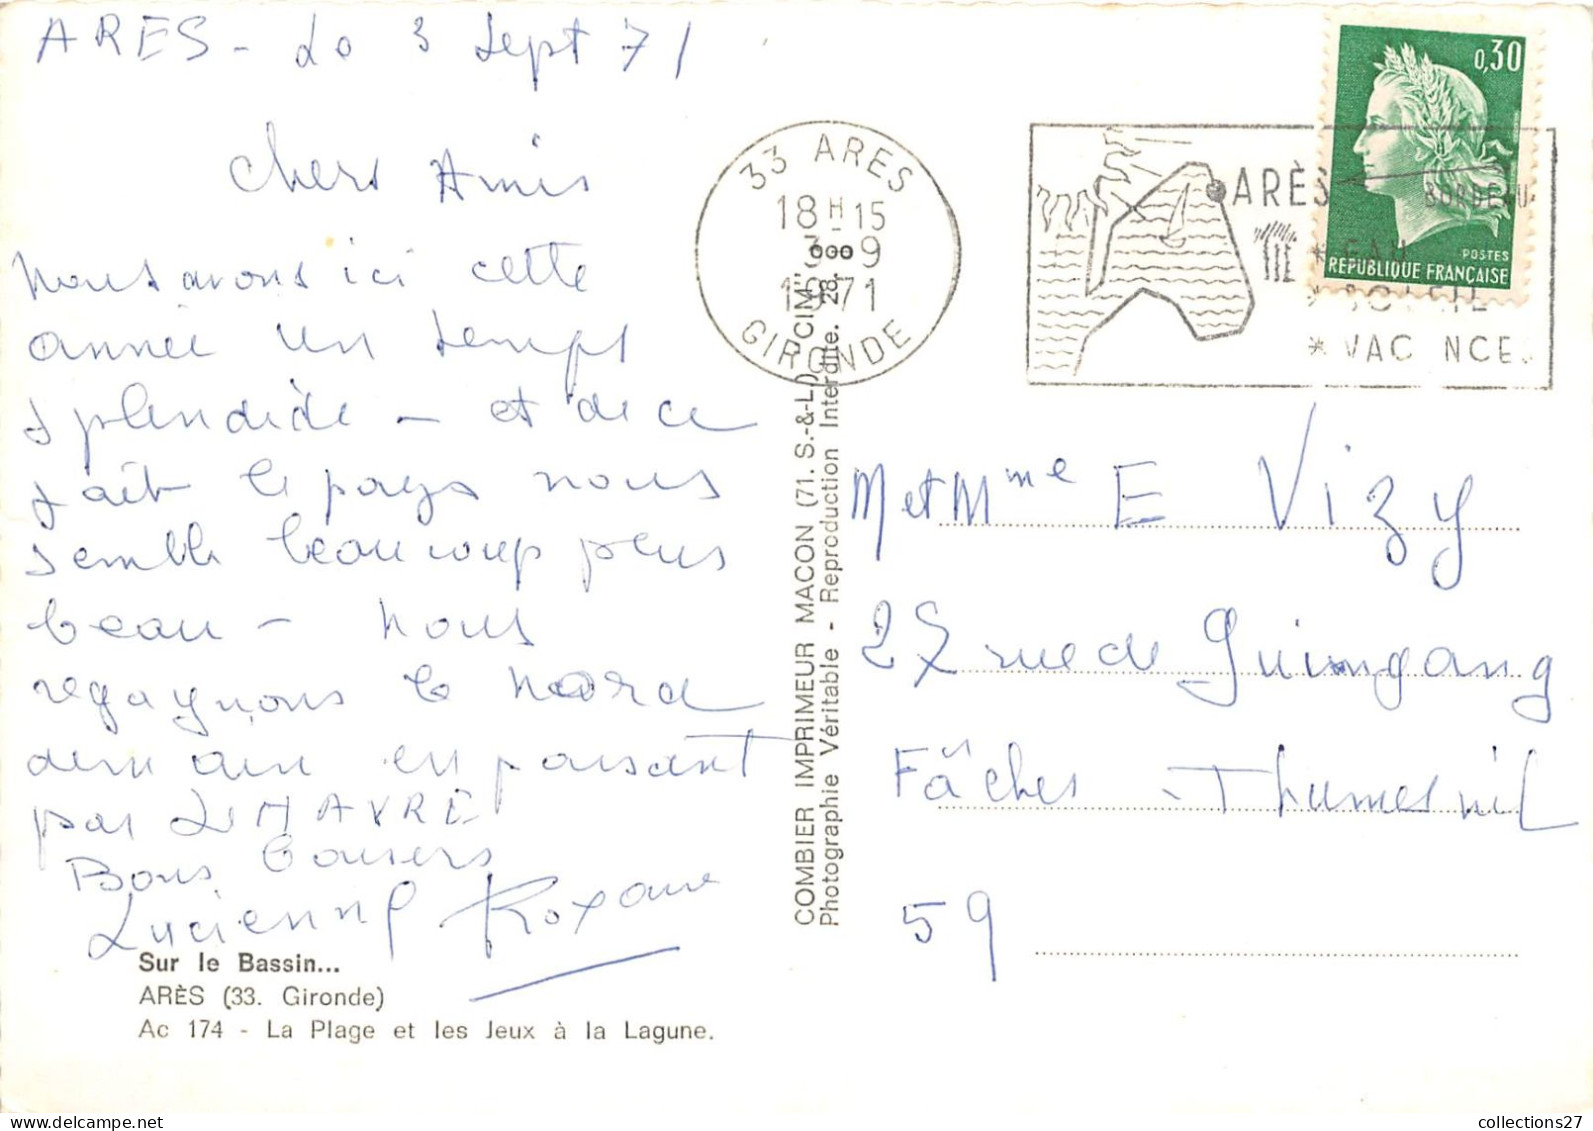 ARES - Le 3 Sept 71
Chers Amis
Nous avons ici cette
année un temps
splendide - et de ce
fait le pays nous
semble beaucoup plus
beau - Nous
regagnons le Nord
demain en passant
par LE HAVRE
Bons Baisers
Lucienne Roxane
Sur le Bassin...
ARÈS (33. Gironde)
Ac 174 - La Plage et les Jeux à la Lagune.
COMBIER IMPRIMEUR MACON (71. S.-&-L.) "CIM"
Photographie Véritable - Reproduction Interdite. 28.
33 ARES
18H15
3-9
1971
GIRONDE
ARÈS
BORDEAU
* EAU
* SOLEIL
* VACANCES
0,30
POSTES
RÉPUBLIQUE FRANÇAISE
M et Mme E Vizy
27 rue de Guimgang
Fâches - Thumesnil
59
collections27